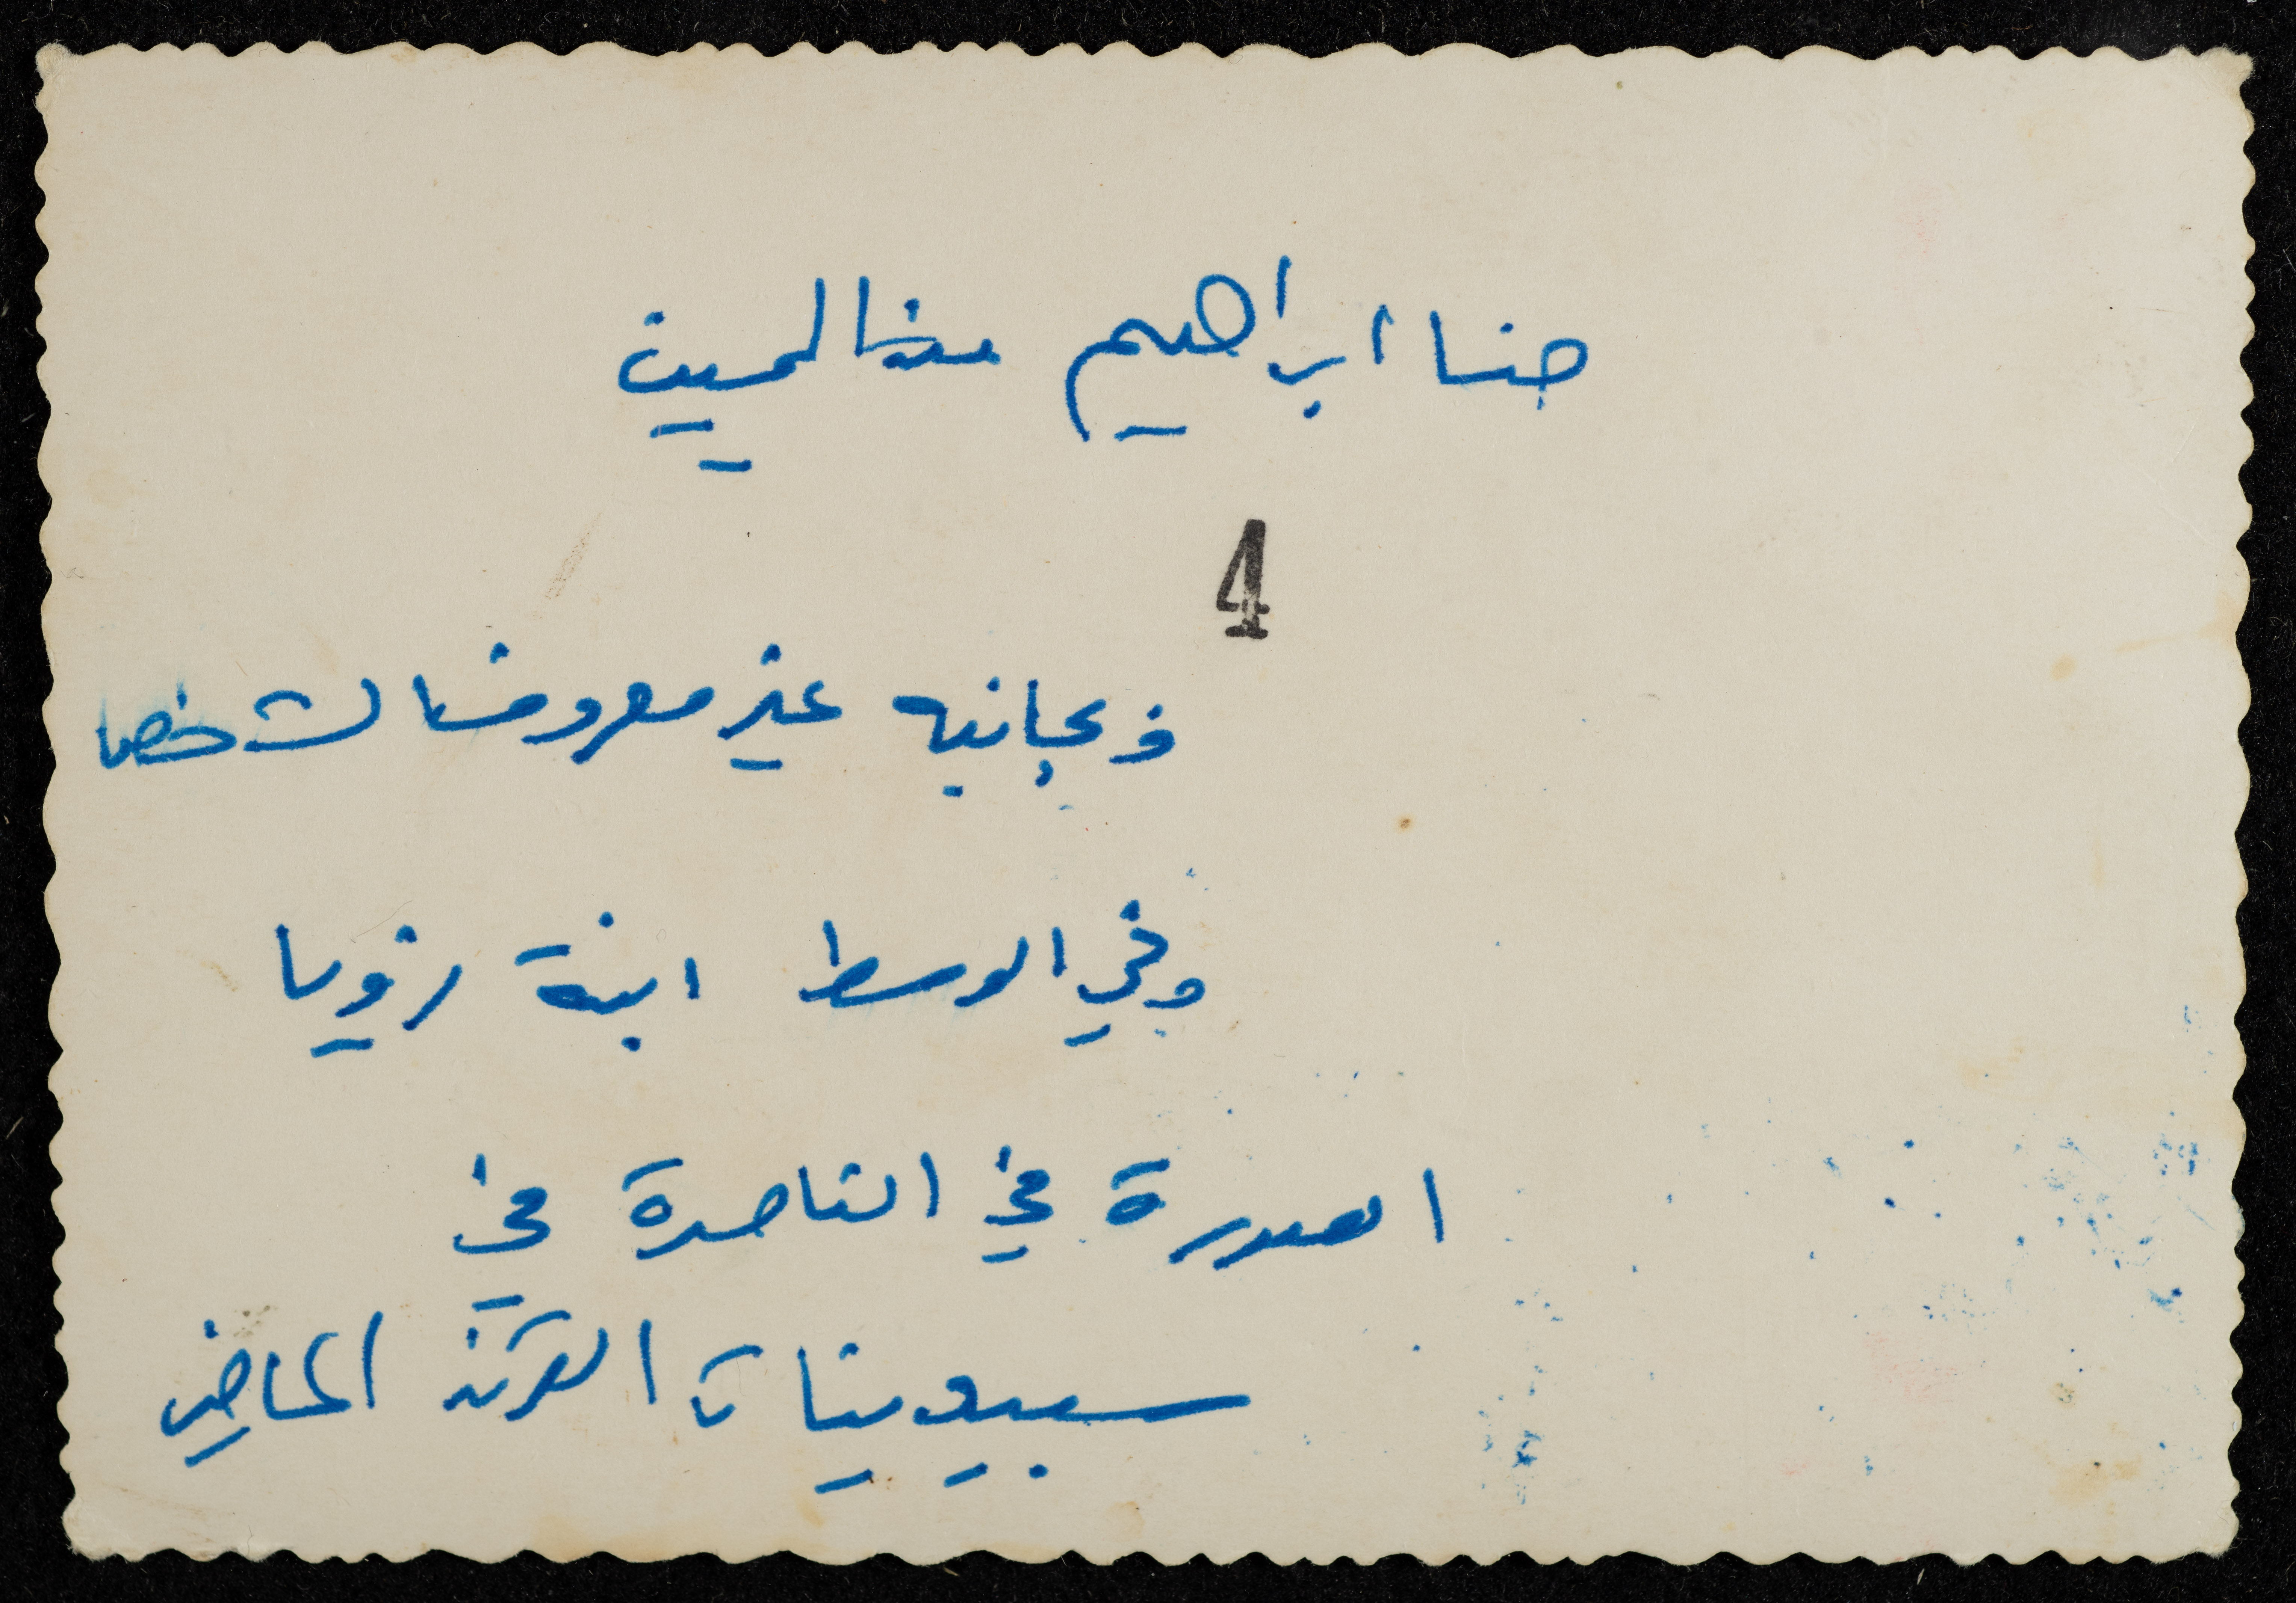 حنا ابراهيم من اليمين
4
وبجانبه غير معروف الشخص
وفي الوسط ابنة رؤيا
الصورة في الناصرة في
سبعينات القرن الماضي